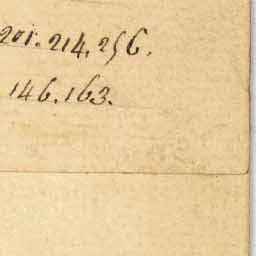 201. 214. 256.
146. 163.